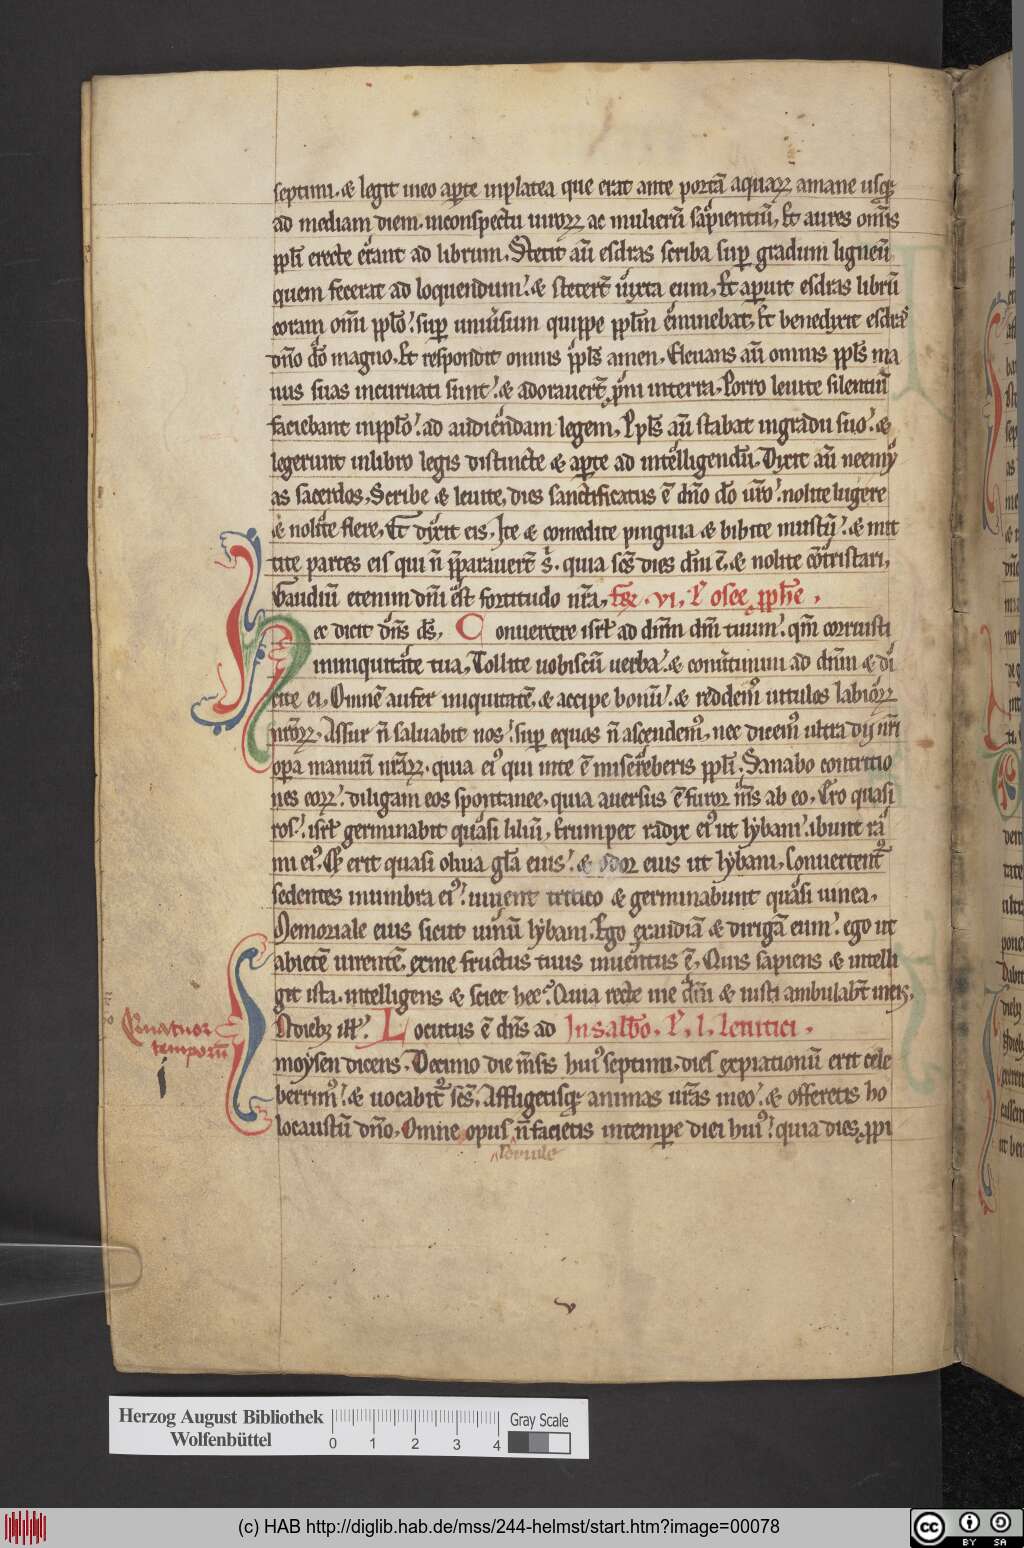 septimi. & legit in eo aꝑte inplatea que erat ante portā aquaꝝ amane usqꝫ
ad mediam diem. inconspectu uiroꝝ ac mulierū sapientiū. Et aures om̄is
ppl̄i erecte erant ad librum. Stetit aū esdras scriba suꝑ gradum ligneū
quem fecerat ad loquendum. & stetert̄ iuxta eum. Et aꝑuit esdras librū
coram om̄i ppl̄o. suꝑ uniūsum quippe ppl̄m eminebat. Et benedixit esdras
dn̄o dō magno. Et respondit omnis ppl̄s amen. Eleuans aū omnis ppl̄s ma
nus suas incuruati sunt. & adorauert̄ pn̄i interra. Porro leuite silentiū
faciebant inppl̄o. ad audiendam legem. Ppl̄s aū stabat ingradu suo. &
legerunt inlibro legis distincte & aꝑte ad intelligendū. Dixit aū neemy
as sacerdos. Scribe & leuite. dies sanctificatus ē dn̄o dō ur̄o. nolite lugere
& nolite flere. Et dixit eis. Ite & comedite pinguia & bibite mustū. & mit
tite partes eis qui n̄ pparauert̄ s. quia scs̄ dies dn̄i ē. & nolite cōtristari.
Gaudiū etenim dn̄i est fortitudo nr̄a. fr̄. vi. L̄ osee pphē.
Hec dicit dn̄s ds̄. Conuertere isrl̄ ad dn̄m dm̄ tuum. qm̄ corruisti
ininiquitate tua. Tollite uobiscū uerba. & conūtimini ad dn̄m & di
cite ei. Omnē aufer iniquitatē. & accipe bonū. & reddem⁹ uitulos labioꝝ
nr̄oꝝ. Assur n̄ saluabit nos. suꝑ equos n̄ ascendem⁹. nec dicem⁹ ultra dij nr̄i
oꝑa manuū nr̄aꝝ. quia ei⁹ qui inte ē misereberis ppl̄i. Sanabo contritio
nes eoꝝ. diligam eos spontanee. quia auersus ē furor m̄s ab eo. Ero quasi
ros. isrl̄ germinabit quasi liliū. Erumpet radix ei⁹ ut lybani. ibunt ra
mi ei⁹. Et erit quasi oliua gl̄a eius. & odor eius ut lybani. Conuertent᷑
sedentes inumbra ei⁹. uiuent tritico & germinabunt quasi uinea.
Memoriale eius sicut uinū lybani. Ego exaudiā & dirigā eum. ego ut
abietē uirentē. exme fructus tuus inuentus ē. Quis sapiens & intelli
git ista. intelligens & sciet hec. Quia recte uie dn̄i & iusti ambulabt̄ ineis.
INdiebꝫ ill̄. Locutus ē dn̄s ad In sabbō. L̄. l. leuitici.
moysen dicens. Decimo die m̄sis hui⁹ septimi. dies expiationū erit cele
berrim⁹. & uocabit᷑ scs̄. Affligetisqꝫ animas ur̄as ineo. & offeretis ho
locaustū dn̄o. Omne opus n̄ facietis intempe diei hui⁹. quia dies ppi
seruile
Quatuor
temporū
Herzog August Bibliothek
Wolfenbüttel
0 1 2 3 4
Gray Scale
(c) HAB http://diglib.hab.de/mss/244-helmst/start.htm?image=00078
cc BY SA